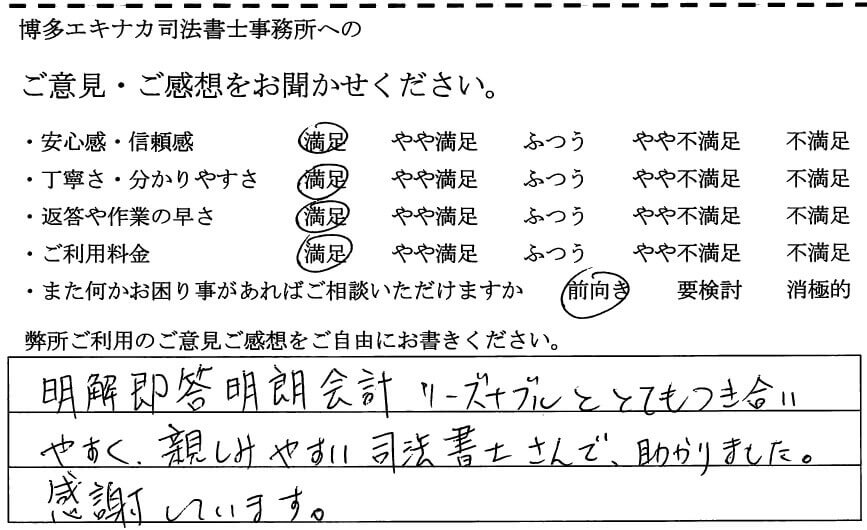 博多エキナカ司法書士事務所への
ご意見・ご感想をお聞かせください。
・安心感・信頼感 満足 やや満足 ふつう やや不満足 不満足
・丁寧さ・分かりやすさ 満足 やや満足 ふつう やや不満足 不満足
・返答や作業の早さ 満足 やや満足 ふつう やや不満足 不満足
・ご利用料金 満足 やや満足 ふつう やや不満足 不満足
・また何かお困り事があればご相談いただけますか 前向き 要検討 消極的
弊所ご利用のご意見ご感想をご自由にお書きください。
明解即答明朗会計 リーズナブルととてもつき合い
やすく、親しみやすい司法書士さんで、助かりました。
感謝しています。